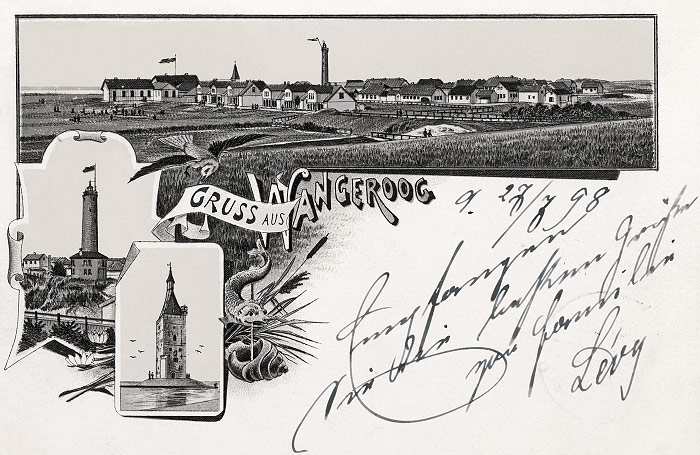 GRUSS AUS WANGEROOG
d. 27/7 98
Empfangen
Sie die besten Grüße
von Familie
Lévy